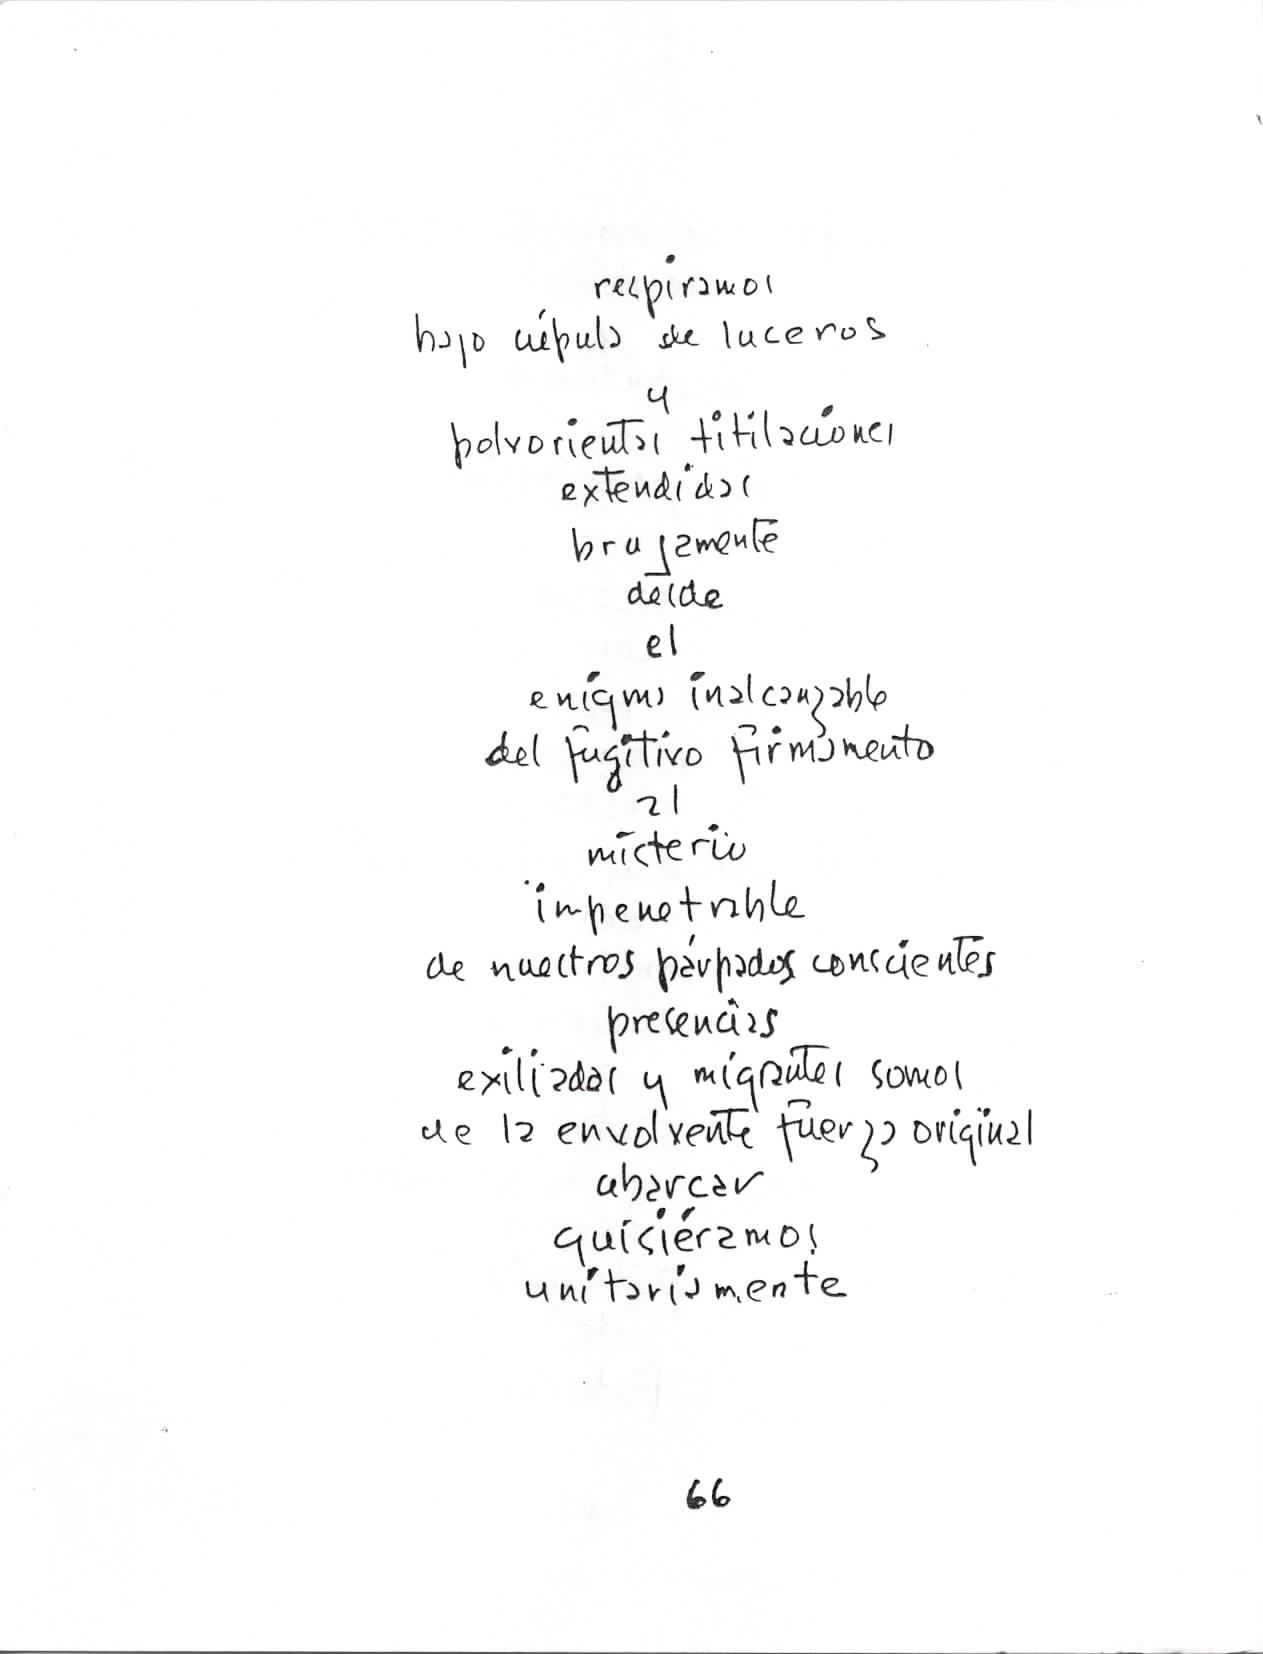 respiramos
bajo cúpula de luceros
y
polvorientas titilaciones
extendidas
brujamente
desde
el
enigma inalcanzable
del fugitivo firmamento
al
misterio
impenetrable
de nuestros párpados conscientes
presencias
exiliadas y migrantes somos
de la envolvente fuerza original
abarcar
quisiéramos
unitariamente
66